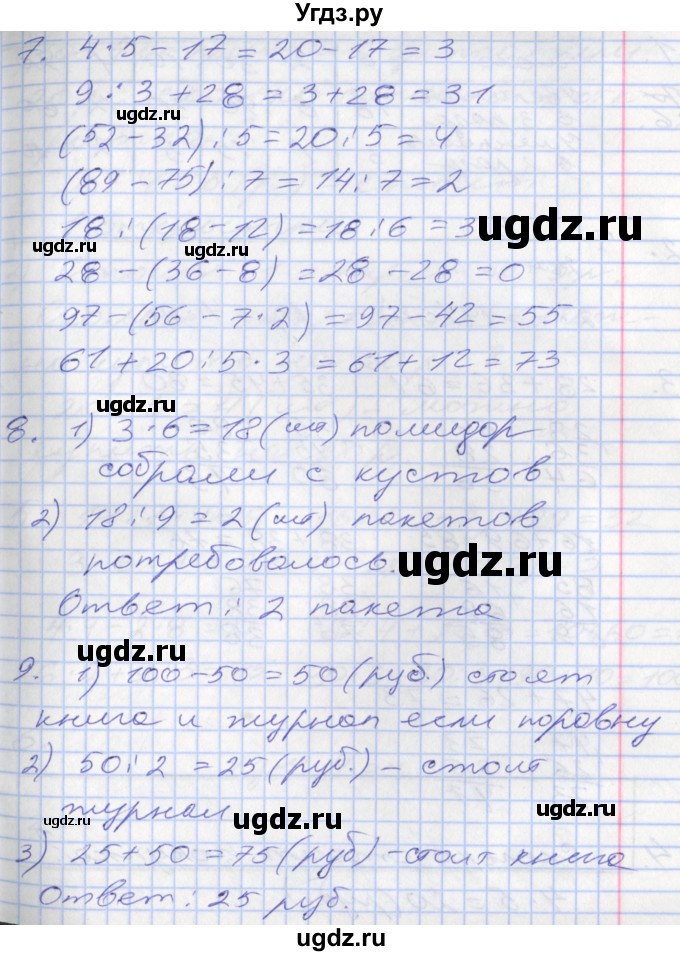 Угдз.ру
7. 4·5-17=20-17=3
9:3+28=3+28=31
ugdz.ru
(52-32):5=20:5=4
(89-75):7=14:7=2
18:(18-12)=18:6=3
ugdz.ru
ugdz.ru ugdz.ru
28-(36-8)=28-28=0
97-(56-7·2)=97-42=55
61+20:5·3=61+12=73
ugdz.ru
8. 1) 3·6=18(шт) помидор
собрали с кустов
2) 18:9=2(шт) пакетов
потребовалось.
ugdz.ru
Ответ: 2 пакета
ugdz.ru
9. 1) 100-50=50(руб.) стоят
книга и журнал если поровну
2) 50:2=25(руб.) - стоит
журнал
ugdz.ru ugdz.ru ugdz.ru
3) 25+50=75(руб) - стоит книга
Ответ: 25 руб.
ugdz.ru